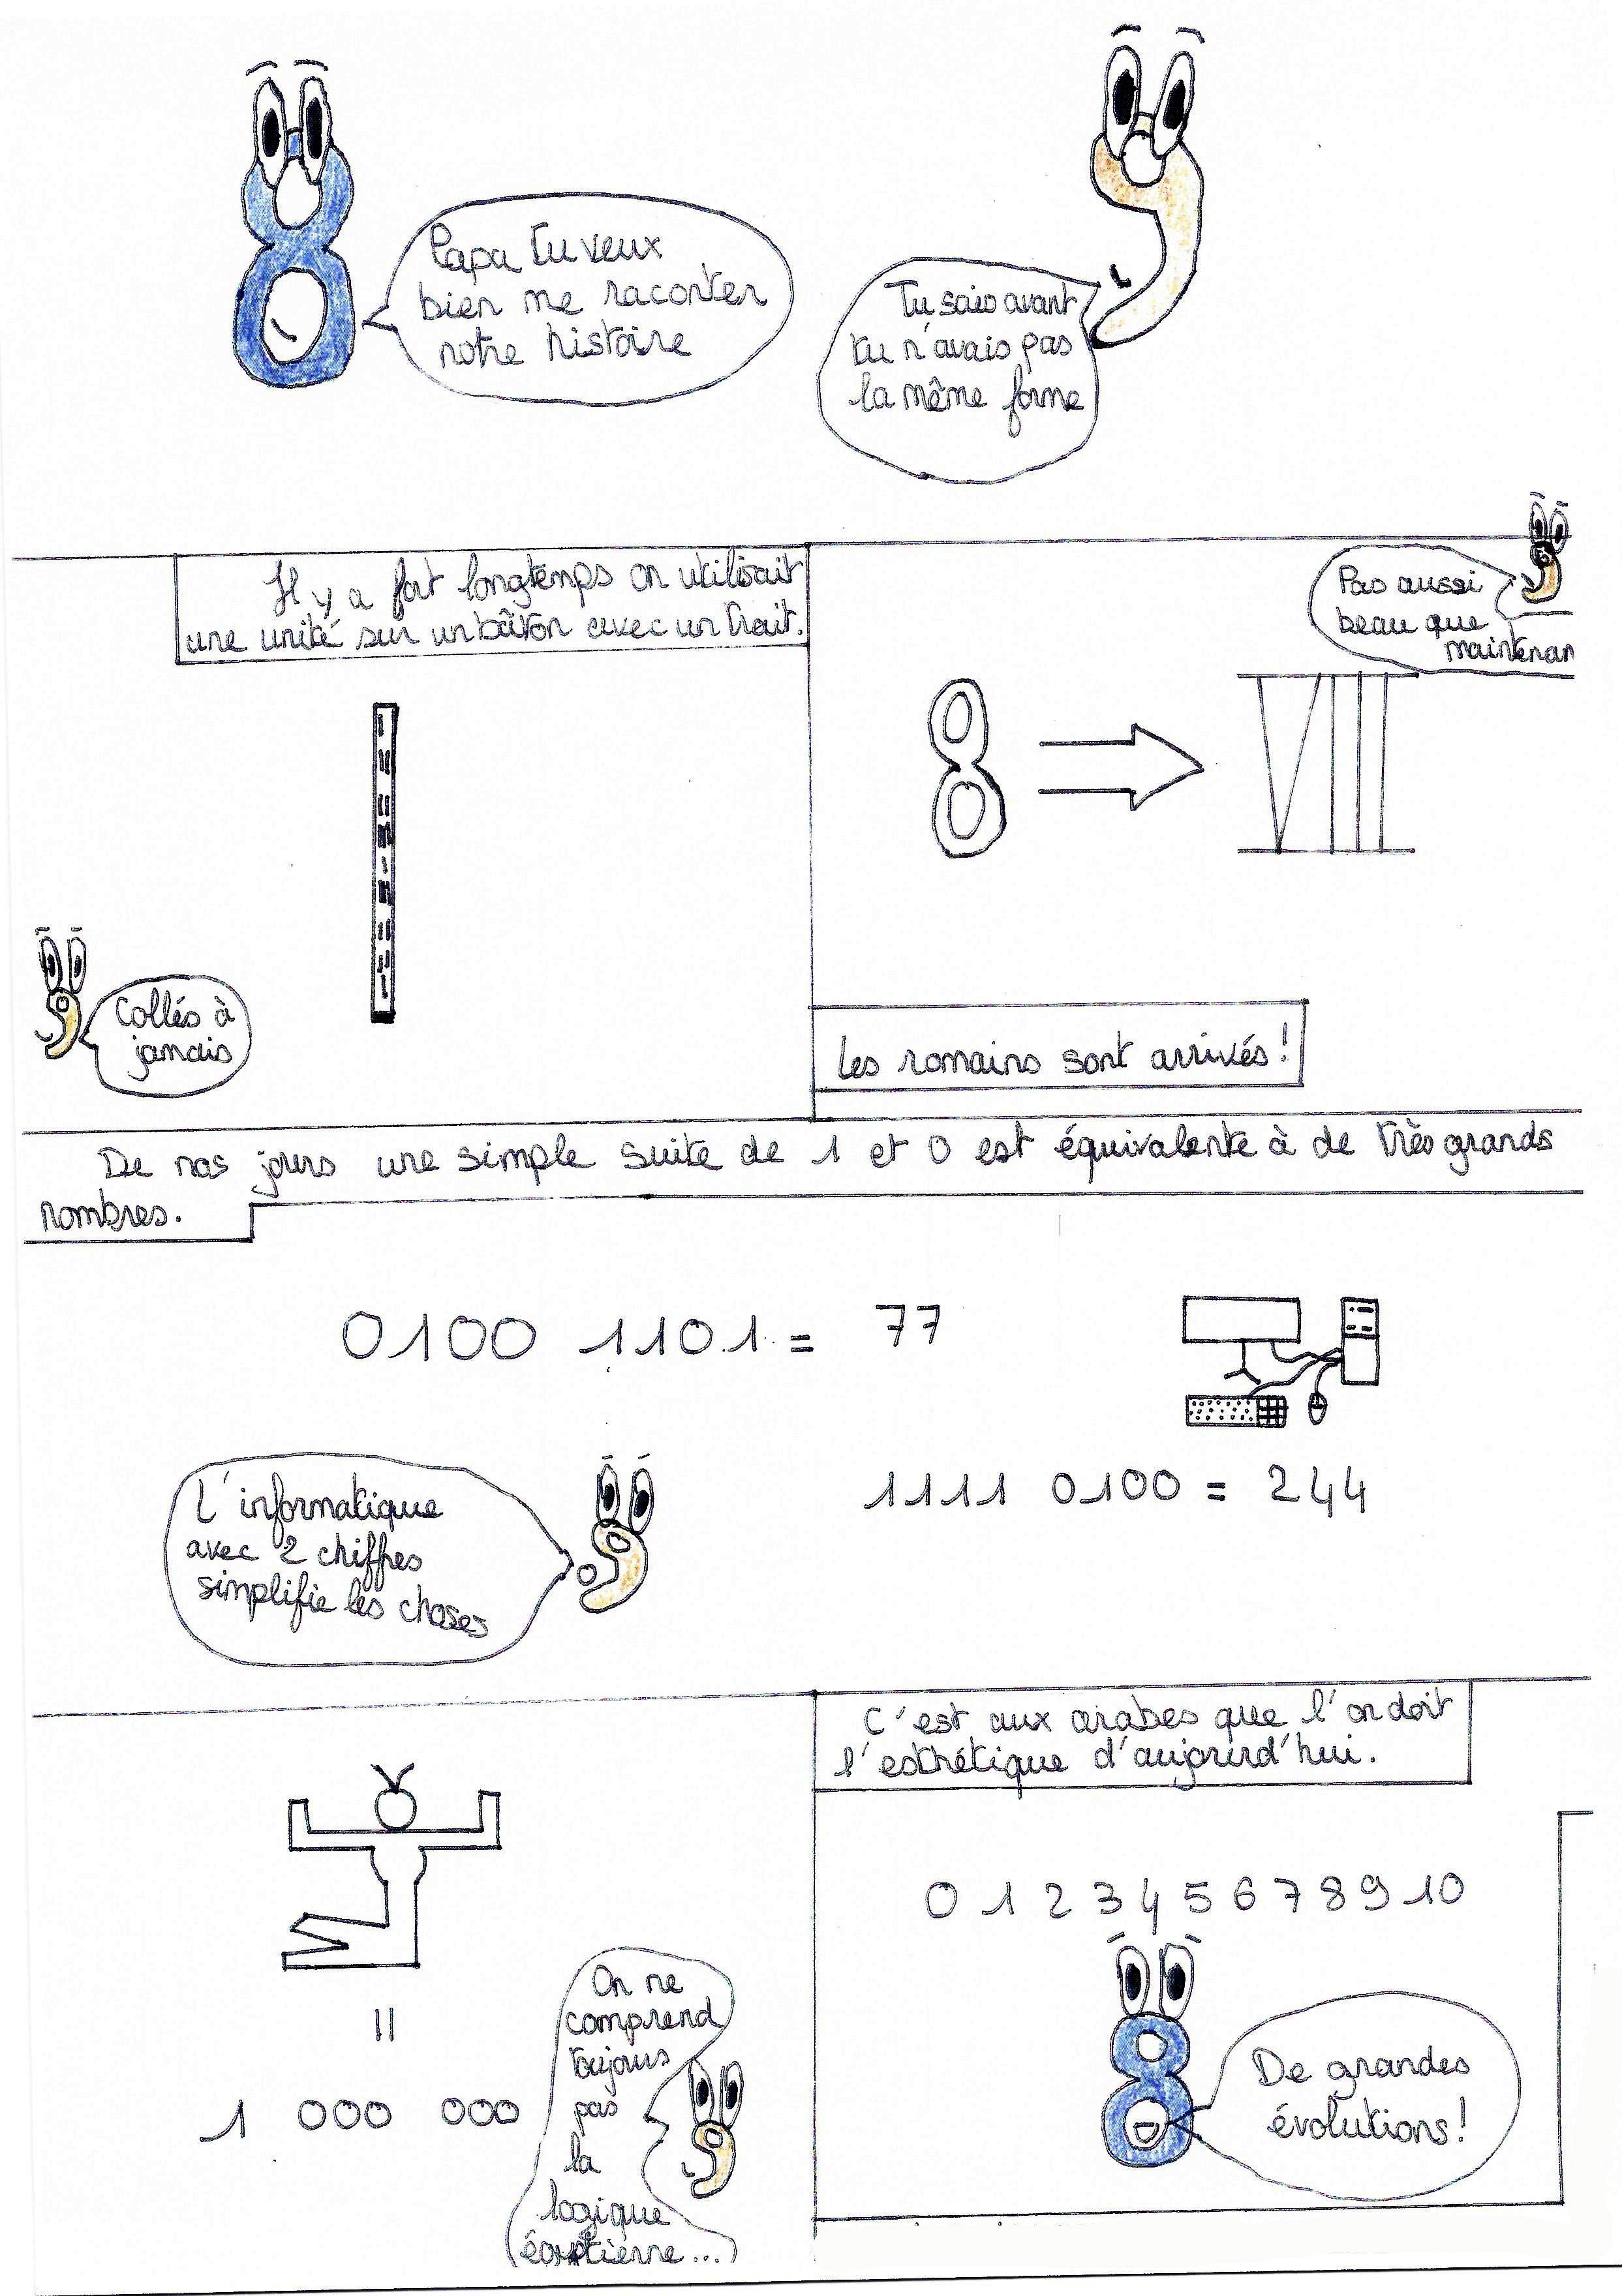 Papa tu veux
bien me raconter
notre histoire
Tu sais avant
tu n'avais pas
la même forme
Il y a fort longtemps on utilisait
une unité sur un bâton avec un trait.
Collés à
jamais
Pas aussi
beau que
maintenan
8
VIII
les romains sont arrivés !
De nos jours une simple suite de 1 et 0 est équivalente à de très grands
nombres.
0100 1101 = 77
1111 0100 = 244
L'informatique
avec 2 chiffres
simplifie les choses
=
1 000 000
On ne
comprend
toujours
pas
la
logique
égyptienne...
C'est aux arabes que l'on doit
l'esthétique d'aujourd'hui.
0 1 2 3 4 5 6 7 8 9 10
De grandes
évolutions !